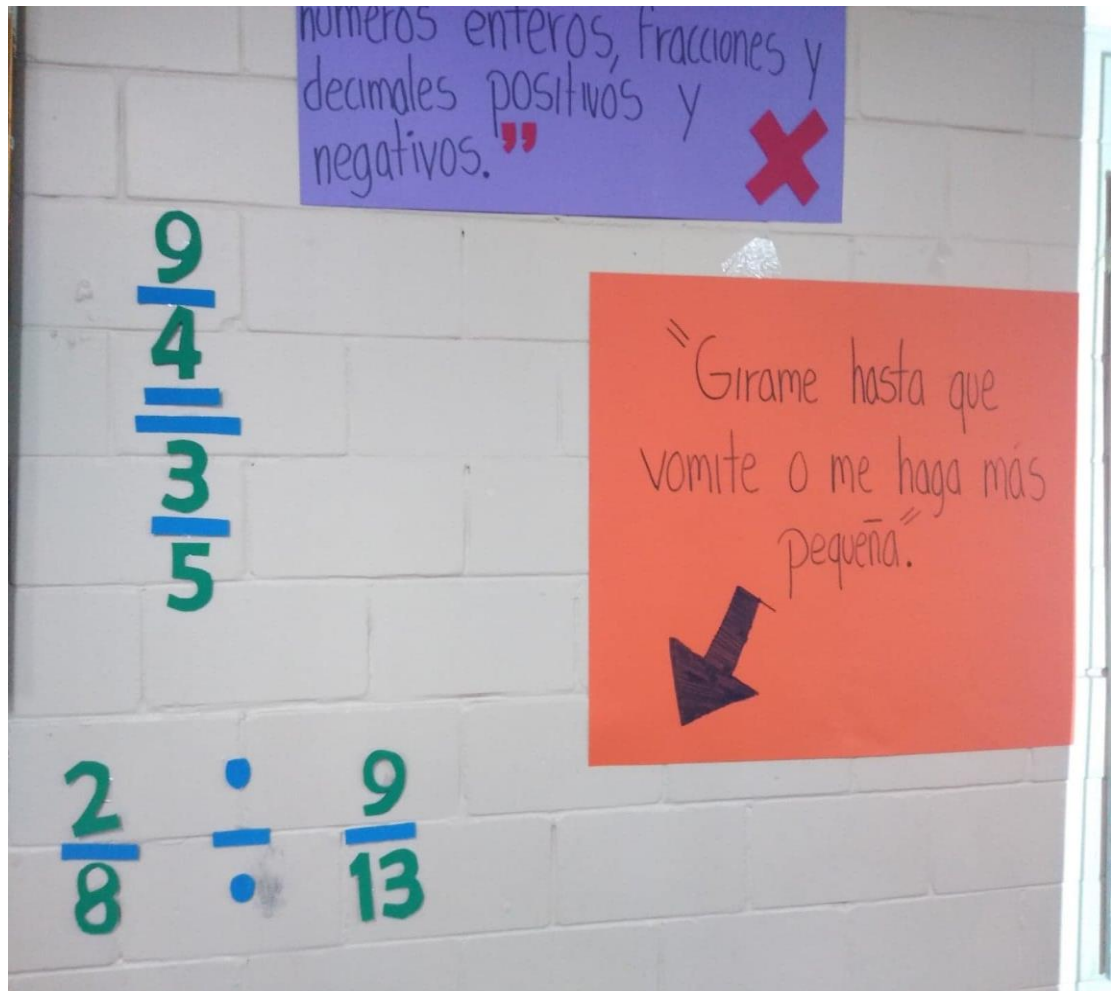 números enteros, fracciones y
decimales positivos y
negativos.”
9
4
3
5
"Girame hasta que
vomite o me haga más
pequeña."
2 ÷ 9
8 13